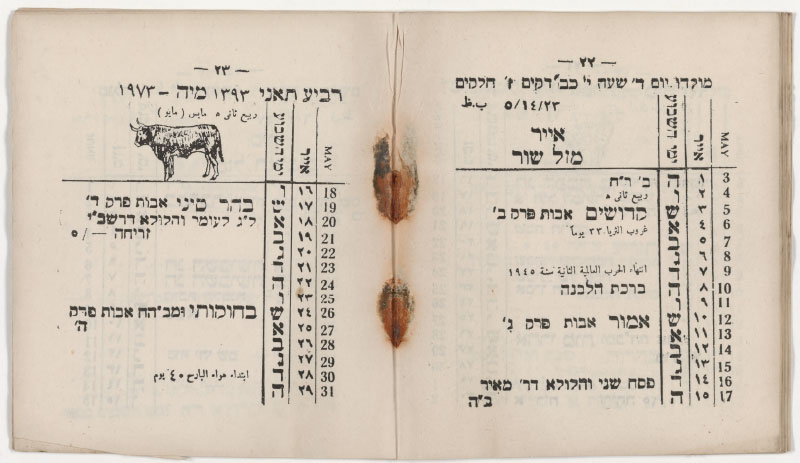 — ٢٢ —
מולדו יום ד' שעה י' כב"דקים ז' חלקים
٥/١٤/٢٣ ب.ظ
MAY אייר ימי השבוע
אייר
מזל שור
3 ١ ה ב' ר"ח
4 ٢ ו ربيع ثانى ٥
5 ٣ ש קדושים אבות פרק ב'
6 ٤ א غروب الثريا ٣٣ يوماً
7 ٥ ב
8 ٦ ג
9 ٧ ד انتهاء الحرب العالمية الثانية سنة ١٩٤٥
10 ٨ ה ברכת הלבנה
11 ٩ ו
12 ١٠ ש אמור אבות פרק ג'
13 ١١ א
14 ١٢ ב
15 ١٣ ג
16 ١٤ ד פסח שני והלולא דר' מאיר
17 ١٥ ה ב"ה
— ٢٣ —
רביע תאני ١٣٩٣ מיה – ١٩٧٣
ربيع ثانى ٥ مايس ( مايو )
MAY אייר ימי השבוע
18 ١٦ ו
19 ١٧ ש בהר סיני אבות פרק ד'
20 ١٨ א ל"ג לעומר והלולא דרשב"י
21 ١٩ ב זריחה —/٥
22 ٢٠ ג
23 ٢١ ד
24 ٢٢ ה
25 ٢٣ ו
26 ٢٤ ש בחוקותי ומב"הח אבות פרק
27 ٢٥ א ה'
28 ٢٦ ב
29 ٢٧ ג
30 ٢٨ ד ابتداء هواء البارح ٤٠ يوم
31 ٢٩ ה